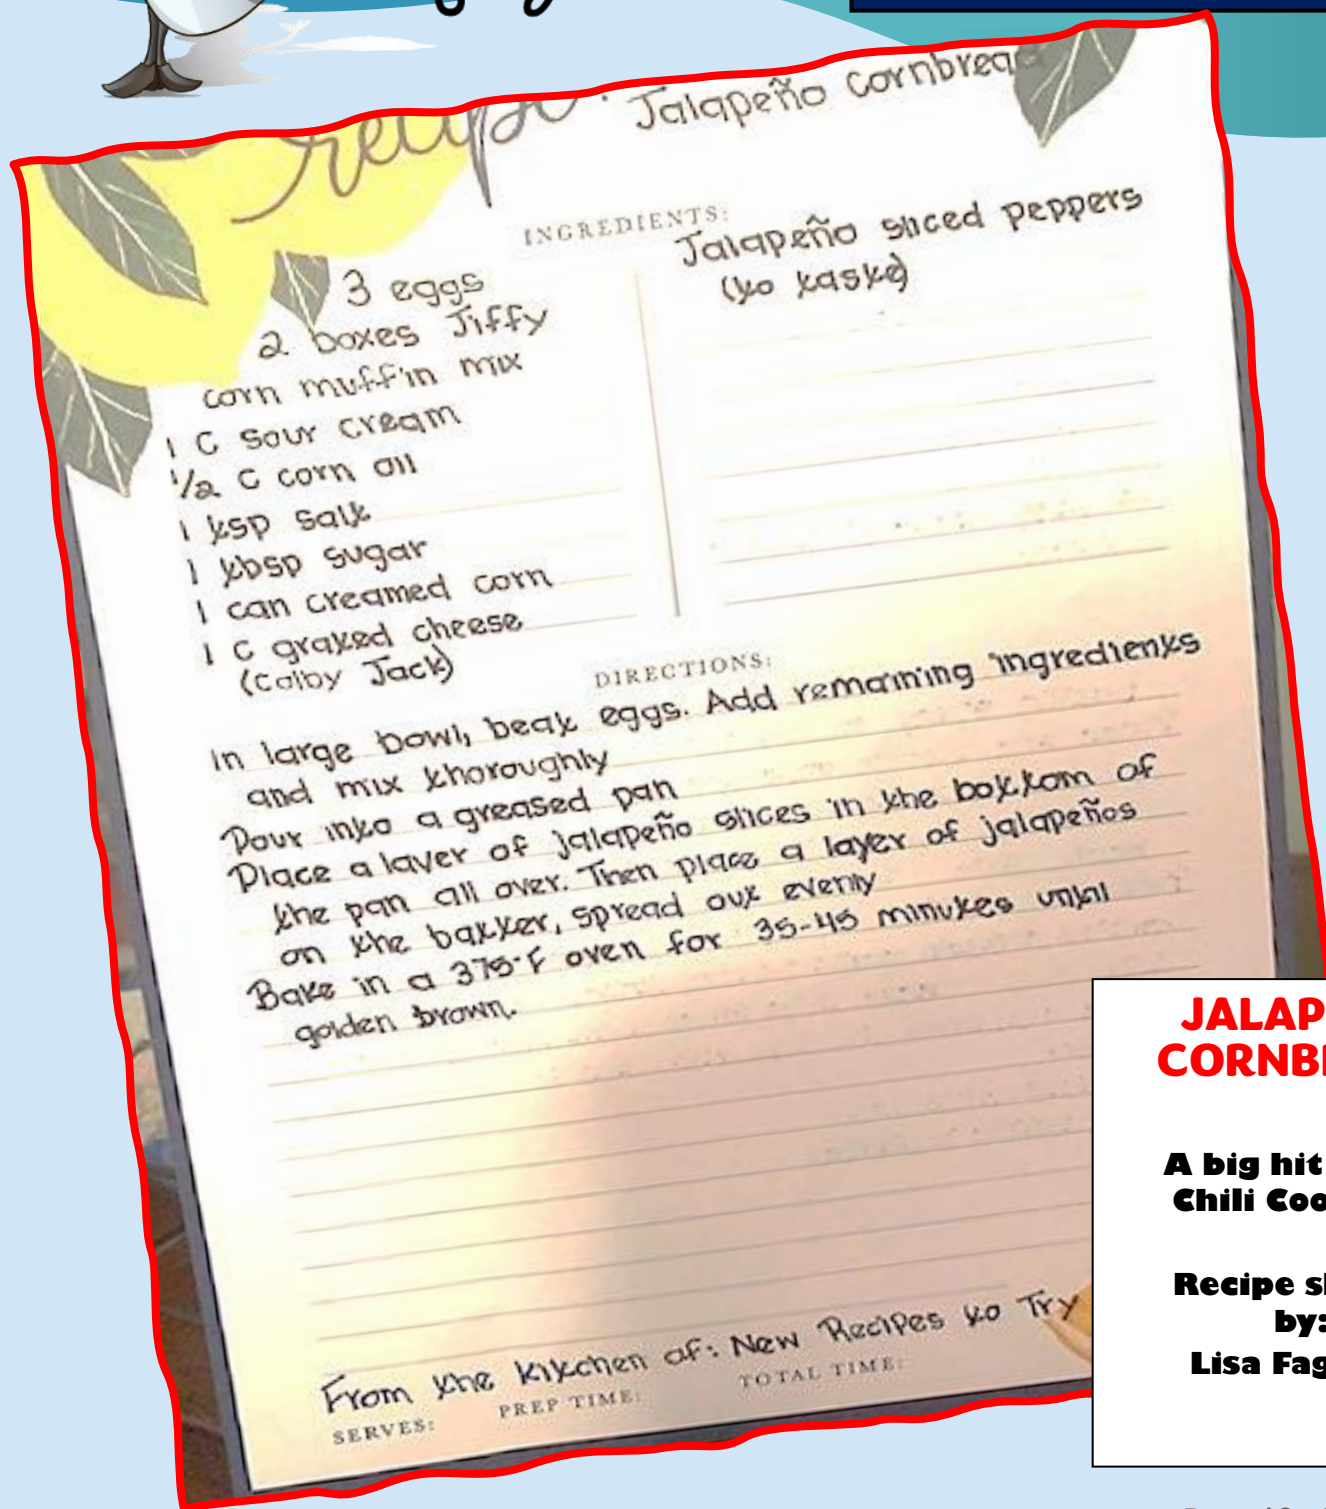 recipe:
Jalapeño Cornbread
INGREDIENTS:
3 eggs
2 boxes Jiffy
corn muffin mix
1 C sour cream
1/2 C corn oil
1 tsp salt
1 tbsp sugar
1 can creamed corn
1 C grated cheese
(Colby Jack)
Jalapeño sliced peppers
(to taste)
DIRECTIONS:
In large bowl, beat eggs. Add remaining ingredients
and mix thoroughly
Pour into a greased pan
Place a layer of jalapeño slices in the bottom of
the pan all over. Then place a layer of jalapeños
on the batter, spread out evenly
Bake in a 375°F oven for 35-45 minutes until
golden brown.
From the Kitchen of: New Recipes to Try
SERVES: PREP TIME: TOTAL TIME:
JALAP
CORNB
A big hit
Chili Coo
Recipe s
by:
Lisa Fag